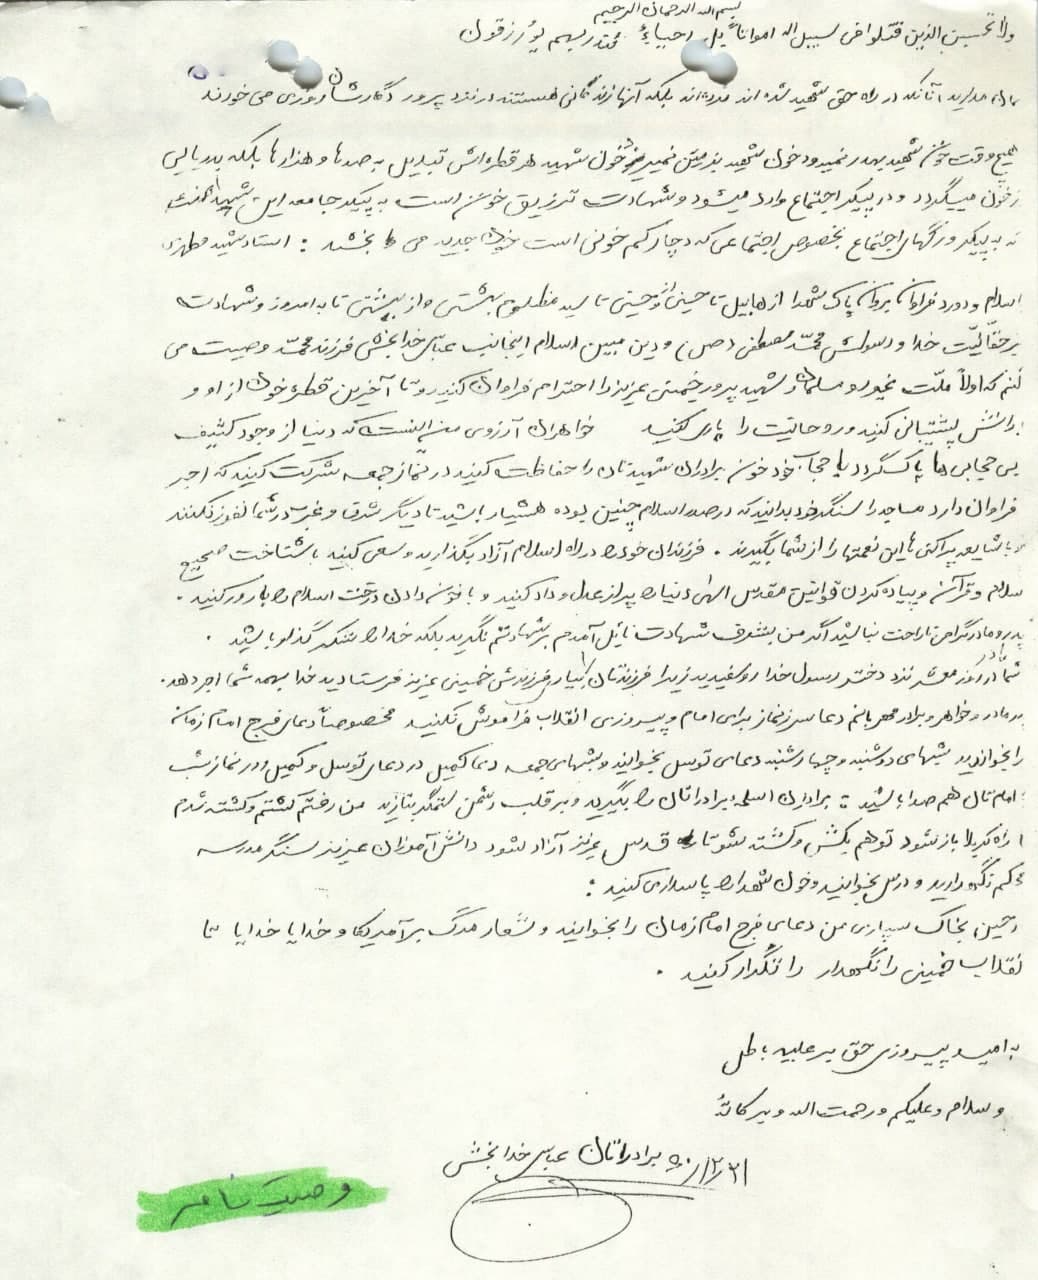 بسم الله الرحمان الرحیم
ولا تحسبن الذین قتلوا فی سبیل الله امواتاً بل احیاءٌ عند ربهم یُرزقون
آنانکه در راه حق شهید شده اند مرده اند بلکه آنها زندگانی هستند در نزد پرور دگارشان روزی می خورند
هیچ وقت خون شهید بهدر نمیرود خون شهید بزمین نمیریزد خون شهید هر قطره اش تبدیل به صدها و هزارها بلکه بدریایی
زخون میگردد و در پیکر اجتماع وارد میشود و شهادت تزریق خون است به پیکر جامعه این شهید است
که به پیکر و رگهای اجتماع بخصوص اجتماعی که دچار کم خونی است خون جدید می بخشد : استاد شهید مطهری
اسلام و درود فراوان بروان پاک شهدا از هابیل تا حسین و از حسین تا سید مظلوم بهشتی و از بهشتی تا به امروز و شهادت
بر حقّانیّت خدا و رسولش محمّد مصطفی (ص) و دین مبین اسلام اینجانب عباس خدابخشی فرزند محمّد وصیت می
کنم که اولاً ملّت غیور و مسلمان و شهید پرور خمینی عزیز را احترام فراوان کنید و تا آخرین قطره خون از او و
یارانش پشتیبانی کنید و روحانیت را یاری کنید خواهران آرزوی من اینست که دنیا از وجود کثیف
بی حجابی ها پاک گردد با حجاب خود خون برادران شهیدتان را حفاظت کنید در نماز جمعه شرکت کنید که اجر
فراوان دارد مساجد را سنگر خود بدانید که در صدر اسلام چنین بوده هشیار باشید تا دیگر شرق و غرب در شما نفوذ نکنند
و با شایعه پراکنی ها این نعمتها را از شما بگیرند . فرزندان خود را در راه اسلام آزاد بگذارید و سعی کنید با شناخت صحیح
سلام و قرآن و پیاده کردن قوانین مقدس الهی دنیا را پر از عدل و داد کنید و با خون دادن درخت اسلام را بارور کنید .
پدر و مادر گرامی ناراحت نباشید اگر من بشرف شهادت نائل آمدم بر شهادتم نگرید بلکه خدا را شکر گذار باشید .
شما در روز محشر نزد دختر رسول خدا رو سفیدید زیرا فرزندتان را بیاری فرزندش خمینی عزیز فرستادید خدا بهمه شما اجر دهد .
پدر مادر و خواهر و برادر مهربانم دعا سر نماز برای امام و پیروزی انقلاب فراموش نکنید مخصوصاً دعای فرج امام زمان
را بخوانید شبهای دوشنبه و چهارشنبه دعای توسل بخوانید و شبهای جمعه دعا کمیل در دعای توسل و کمیل و در نماز شب
امام تان هم صدا باشید : برادران اسلحه برادرانتان را بگیرید و بر قلب دشمن ستمگر بتازید من رفتم کشتم و کشته شدم
تا راه کربلا باز شود تو هم بکش و کشته شو تا قدس عزیز آزاد شود دانش آموزان عزیز سنگر مدرسه
محکم نگهدارید و درس بخوانید و خون شهدا را پاسداری کنید :
در حین بخاک سپاری من دعای فرج امام زمان را بخوانید و شعار مرگ بر آمریکا و خدایا خدایا تا
انقلاب خمینی را نگهدار را تکرار کنید .
به امید پیروزی حق بر علیه باطل
و سلام و علیکم و رحمت الله و برکاتهُ
برادرتان عباس خدابخشی
وصیت نامه